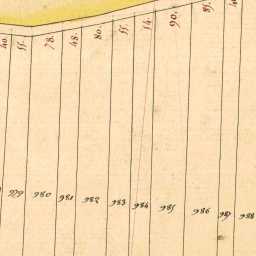 40. 55. 78. 48. 80. 55. 54. 90. 85.
979 980 981 982 983 984 985 986 987 988